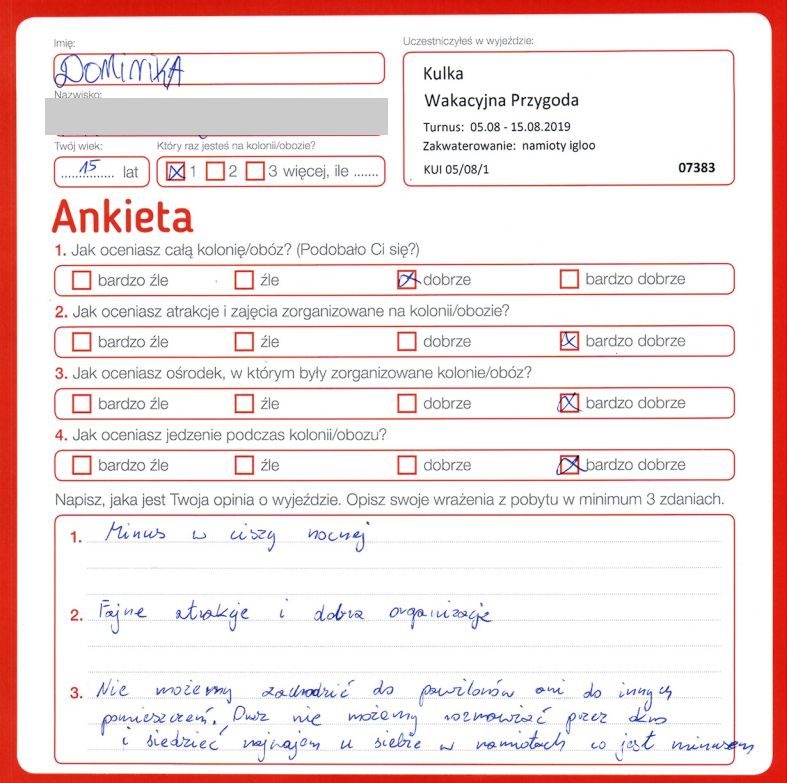 Imię:
DOMINIKA
Nazwisko:
Twój wiek:
15 lat
Który raz jesteś na kolonii/obozie?
1 2 3 więcej, ile .......
Uczestniczyłeś w wyjeździe:
Kulka
Wakacyjna Przygoda
Turnus: 05.08 - 15.08.2019
Zakwaterowanie: namioty igloo
KUI 05/08/1 07383
Ankieta
1. Jak oceniasz całą kolonię/obóz? (Podobało Ci się?)
bardzo źle źle dobrze bardzo dobrze
2. Jak oceniasz atrakcje i zajęcia zorganizowane na kolonii/obozie?
bardzo źle źle dobrze bardzo dobrze
3. Jak oceniasz ośrodek, w którym były zorganizowane kolonie/obóz?
bardzo źle źle dobrze bardzo dobrze
4. Jak oceniasz jedzenie podczas kolonii/obozu?
bardzo źle źle dobrze bardzo dobrze
Napisz, jaka jest Twoja opinia o wyjeździe. Opisz swoje wrażenia z pobytu w minimum 3 zdaniach.
1. Minus w ciszy nocnej
2. Fajne atrakcje i dobra organizacje
3. Nie możemy zachodzić do pawilonów ani do innych
pomieszczeń. nie możemy rozmawiać przez okno
i siedzieć u siebie w namiotach co jest minusem